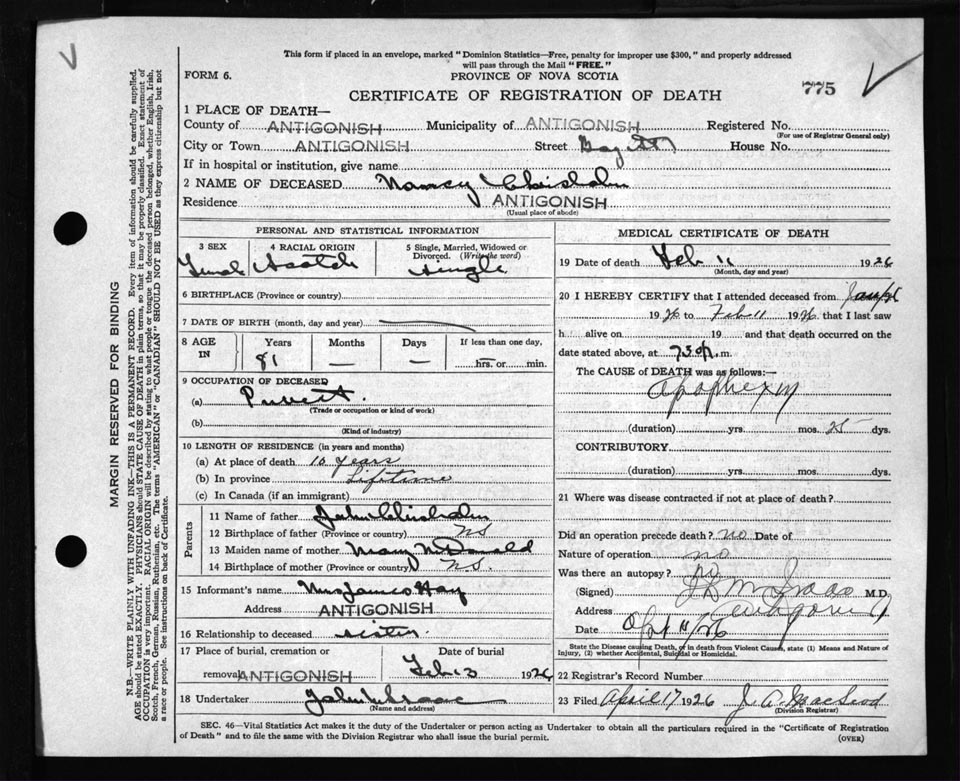 This form if placed in an envelope, marked "Dominion Statistics—Free, penalty for improper use $300," and properly addressed
will pass through the Mail "FREE."
FORM 6.
PROVINCE OF NOVA SCOTIA
775
CERTIFICATE OF REGISTRATION OF DEATH
1 PLACE OF DEATH—
County of ANTIGONISH Municipality of ANTIGONISH Registered No.
(For use of Registrar General only)
City or Town ANTIGONISH Street Bay St House No.
If in hospital or institution, give name
2 NAME OF DECEASED Nancy Chisholm
Residence ANTIGONISH
(Usual place of abode)
PERSONAL AND STATISTICAL INFORMATION
3 SEX 4 RACIAL ORIGIN 5 Single, Married, Widowed or Divorced. (Write the word)
Scotch Single
6 BIRTHPLACE (Province or country)
7 DATE OF BIRTH (month, day and year)
8 AGE IN Years Months Days If less than one day,
81 — — — hrs. or — min.
9 OCCUPATION OF DECEASED
(a)
(Trade or occupation or kind of work)
(b)
(Kind of industry)
10 LENGTH OF RESIDENCE (in years and months)
(a) At place of death 10 years
(b) In province Lifetime
(c) In Canada (if an immigrant)
Parents
11 Name of father John Chisholm
12 Birthplace of father (Province or country) NS
13 Maiden name of mother Mary McDonald
14 Birthplace of mother (Province or country) NS.
15 Informant's name Mrs James Hay
Address ANTIGONISH
16 Relationship to deceased sister.
17 Place of burial, cremation or removal Date of burial
ANTIGONISH Feb 13 1926
18 Undertaker John
(Name and address)
MEDICAL CERTIFICATE OF DEATH
19 Date of death Feb 11 1926
(Month, day and year)
20 I HEREBY CERTIFY that I attended deceased from
1926 to Feb 11 1926 that I last saw
h alive on 19 and that death occurred on
date stated above, at 7.30 P. m.
The CAUSE of DEATH was as follows:—
Apoplexy
(duration) yrs. mos. 25 dys.
CONTRIBUTORY.
(duration) yrs. mos. dys.
21 Where was disease contracted if not at place of death?
Did an operation precede death? no Date of
Nature of operation no
Was there an autopsy? no
(Signed) M.D.
Address Antigonish
Date
State the Disease causing Death, or in death from Violent Causes, state (1) Means and Nature of
Injury, (2) whether Accidental, Suicidal or Homicidal.
22 Registrar's Record Number
23 Filed April 17 1926 J. A. MacLeod
(Division Registrar)
SEC. 46—Vital Statistics Act makes it the duty of the Undertaker or person acting as Undertaker to obtain all the particulars required in the "Certificate of Registration
of Death" and to file the same with the Division Registrar who shall issue the burial permit.
(OVER)
MARGIN RESERVED FOR BINDING
N.B.—WRITE PLAINLY WITH UNFADING INK—THIS IS A PERMANENT RECORD. Every item of information should be carefully supplied.
AGE should be stated EXACTLY. PHYSICIANS should STATE CAUSE OF DEATH in plain terms, so that it may be properly classified. Exact statement of
OCCUPATION is very important. RACIAL ORIGIN will be described by stating to what people or tongue the deceased person belonged, whether English, Irish,
Scotch, French, German, Russian, Ruthenian, etc. The terms "AMERICAN" or "CANADIAN" SHOULD NOT BE USED as they express citizenship but not
a race or people. See instructions on back of Certificate.